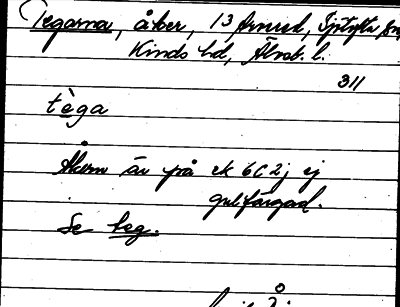 Tegarna, åker, 13 Arnud,
Kinds hd, Älvsb. l.
311
tèga
Åkern är på ek 6C 2j ej
gulfärgad.
Se teg.